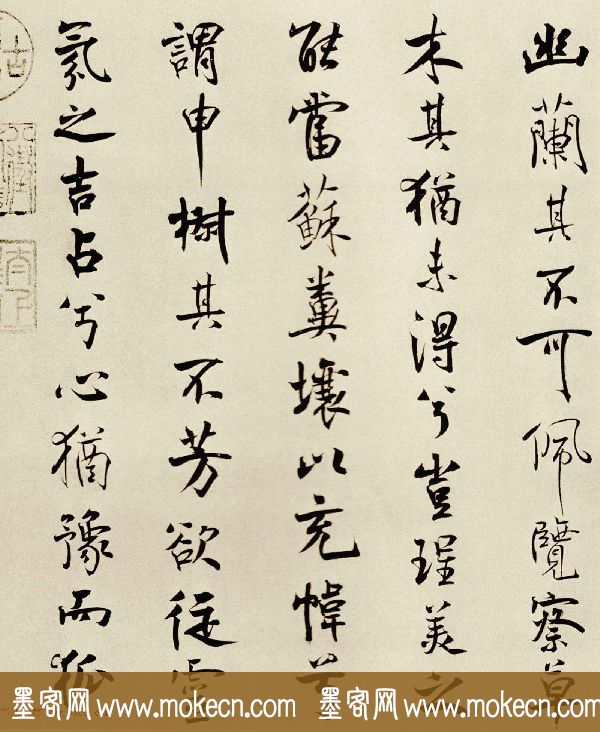 幽蘭其不可佩覽察草
木其猶未得兮豈珵美之
能當蘇糞壤以充幃兮
謂申椒其不芳欲從靈
氛之吉占兮心猶豫而狐
墨客网 www.mokecn.com 墨客网 www.mokecn.com